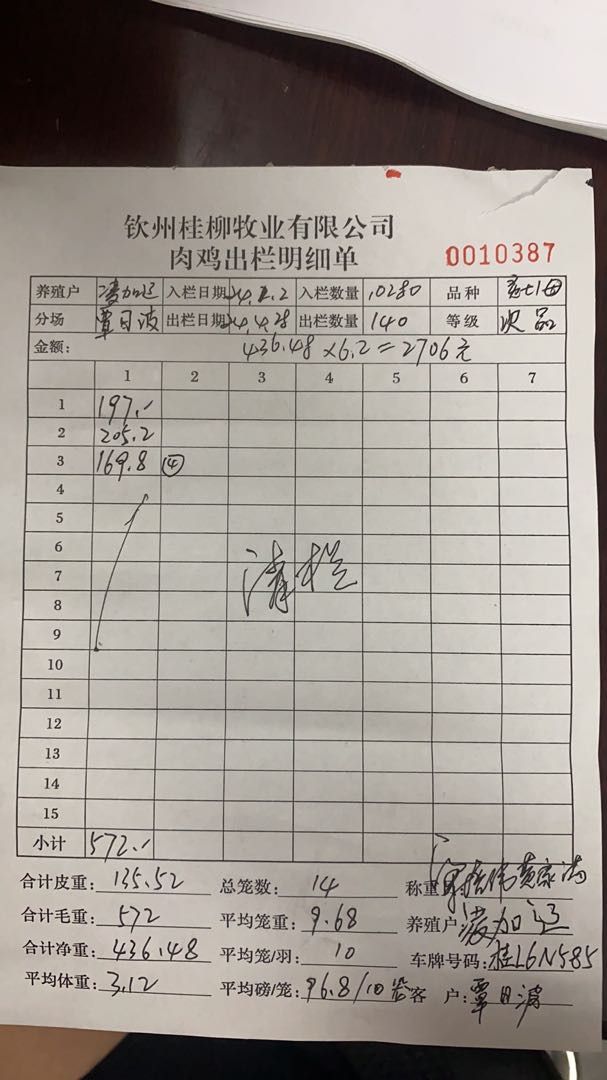 钦州桂柳牧业有限公司
肉鸡出栏明细单 0010387
养殖户 凌加运 入栏日期 24.1.2 入栏数量 10280 品种
分场 覃日波 出栏日期 24.4.28 出栏数量 140 等级 次品
金额: 436.48×6.2=2706元
1 2 3 4 5 6 7
1 197.-
2 205.2
3 169.8 ④
4
5
6
7 清栏
8
9
10
11
12
13
14
15
小计 572.-
合计皮重: 135.52 总笼数: 14 称重
合计毛重: 572 平均笼重: 9.68 养殖户: 凌加运
合计净重: 436.48 平均笼/羽: 10 车牌号码: 桂L6N585
平均体重: 3.12 平均磅/笼: 96.8/10 客 户: 覃日波